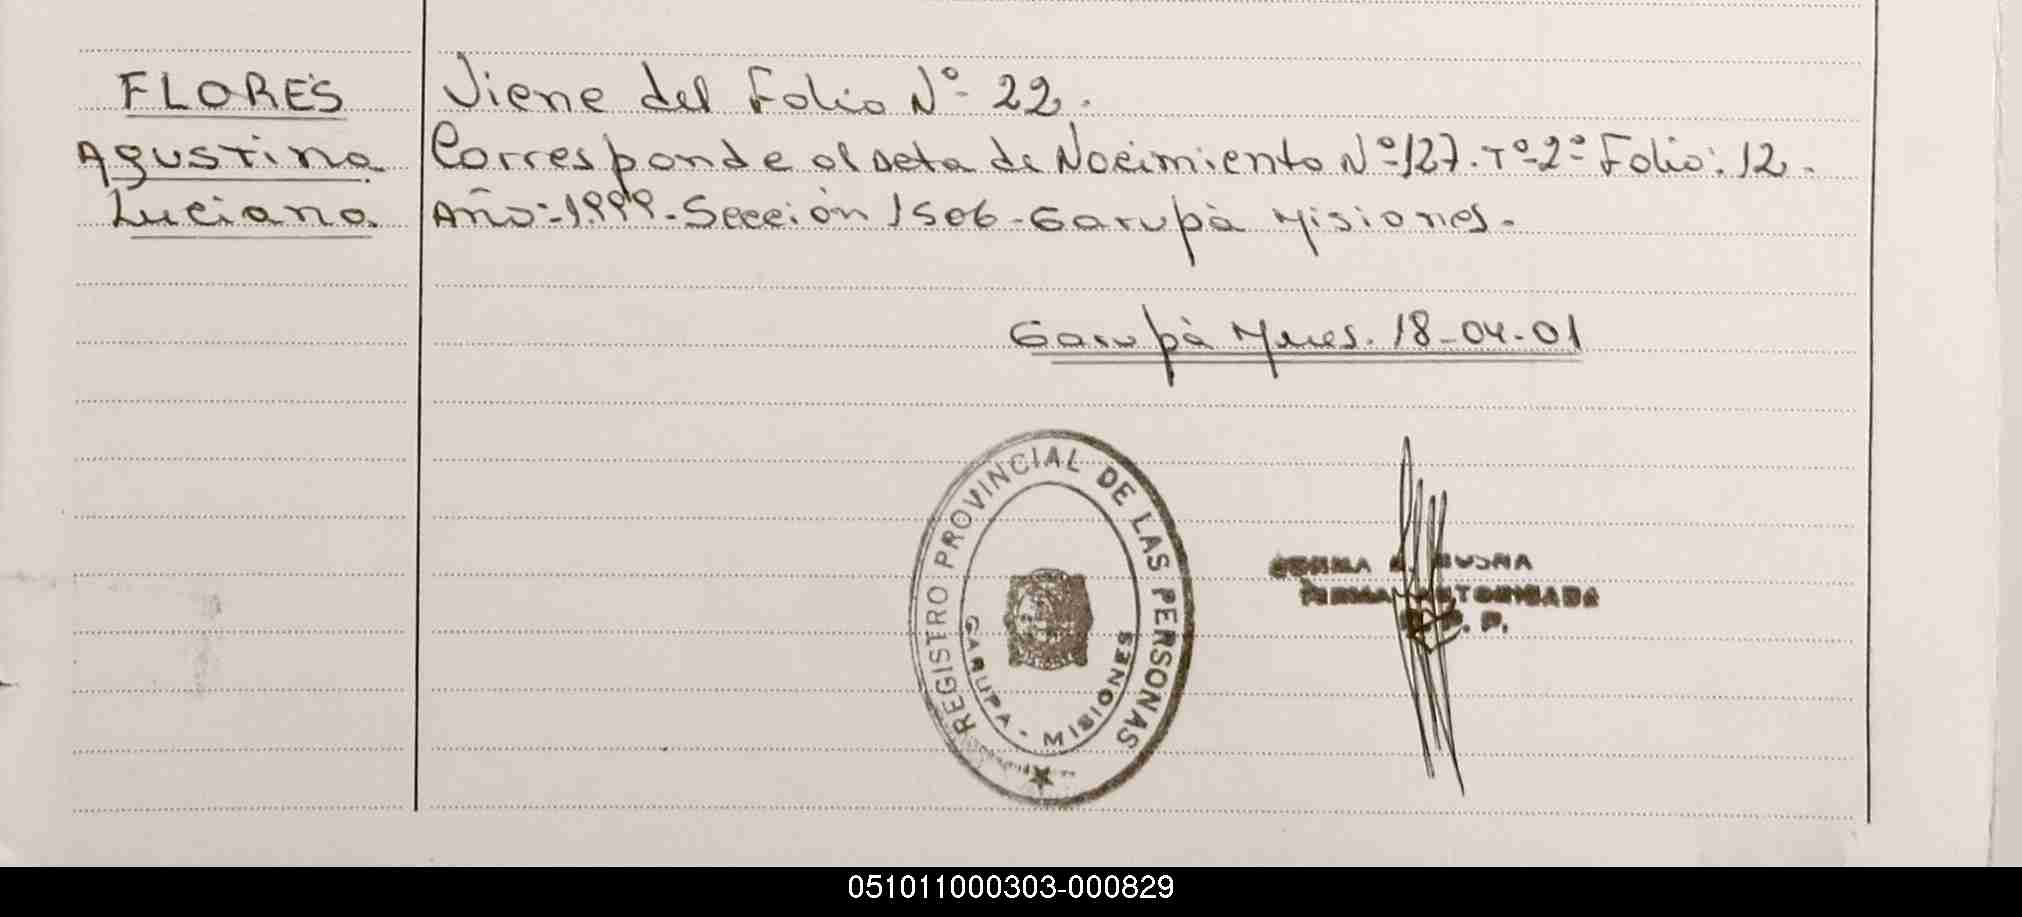 FLORES
Agustina
Luciana
Viene del Folio Nº 22.
Corresponde al acta de Nacimiento Nº 127. Tº 2º Folio: 12.
Año: 1999. Sección 1506 - Garupà Misiones.
Garupà Mnes. 18-04-01
REGISTRO PROVINCIAL DE LAS PERSONAS
GARUPA - MISIONES
FIRMA AUTORIZADA
051011000303-000829